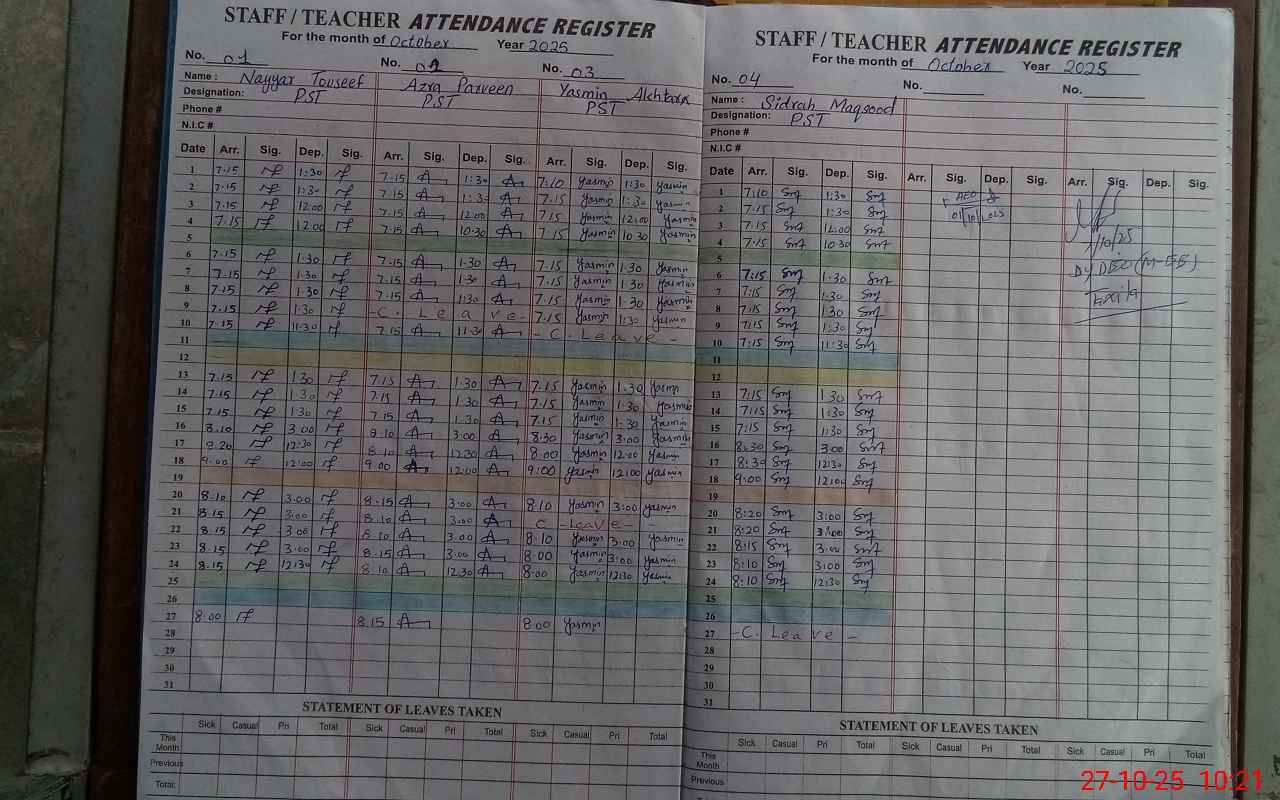 STAFF / TEACHER ATTENDANCE REGISTER
For the month of October Year 2025
No. 01 No. 02 No. 03
Name : Nayyar Touseef Azra Parveen Yasmin Akhtar
Designation: PST PST PST
Phone #
N.I.C #
Date Arr. Sig. Dep. Sig. Arr. Sig. Dep. Sig. Arr. Sig. Dep. Sig.
1 7.15 1:30 7.15 1:30 7:10 Yasmin 1:30 Yasmin
2 7.15 1:30 7.15 1:30 7.15 Yasmin 1:30 Yasmin
3 7.15 12.00 7.15 12.00 7.15 Yasmin 12:00 Yasmin
4 7.15 12.00 7.15 10.30 7.15 Yasmin 10 30 Yasmin
5
6 7.15 1.30 7.15 1.30 7.15 Yasmin 1.30 Yasmin
7 7.15 1.30 7.15 1.30 7.15 Yasmin 1.30 Yasmin
8 7.15 1.30 7.15 1:30 7.15 Yasmin 1.30 Yasmin
9 7.15 1:30 -C. Leave- 7.15 Yasmin 1:30 Yasmin
10 7.15 11:30 7.15 11.30 -C. Leave-
11
12
13 7.15 1.30 7.15 1.30 7.15 Yasmin 1.30 Yasmin
14 7.15 1:30 7.15 1.30 7.15 Yasmin 1.30 Yasmin
15 7.15 1:30 7.15 1.30 7.15 Yasmin 1.30 Yasmin
16 8.10 3.00 8.10 3.00 8:30 Yasmin 3:00 Yasmin
17 8.20 12:30 8.10 12.30 8.00 Yasmin 12:00 Yasmin
18 9.00 12:00 9.00 12:00 9:00 Yasmin 12:00 Yasmin
19
20 8.10 3.00 8.15 3.00 8.10 Yasmin 3:00 Yasmin
21 8.15 3:00 8.10 3:00 C -Leave-
22 8.15 3.00 8.10 3.00 8:10 Yasmin 3:00 Yasmin
23 8.15 3.00 8.15 3.00 8:00 Yasmin 3:00 Yasmin
24 8.15 12:30 8.10 12.30 8:00 Yasmin 12:30 Yasmin
25
26
27 8.00 8.15 8.00 Yasmin
28
29
30
31
STATEMENT OF LEAVES TAKEN
Sick Casual Pri Total Sick Casual Pri Total Sick Casual Pri Total
This Month
Previous
Total:
STAFF / TEACHER ATTENDANCE REGISTER
For the month of October Year 2025
No. 04 No. No.
Name : Sidrah Maqsood
Designation: PST
Phone #
N.I.C #
Date Arr. Sig. Dep. Sig. Arr. Sig. Dep. Sig. Arr. Sig. Dep. Sig.
1 7:10 1:30 AEO
2 7.15 1:30
3 7.15 12.00 /10/25
4 7.15 10 30
5 Dy DEO (M-EE)
6 7:15 1.30
7 7:15 1:30
8 7:15 1:30
9 7:15 1:30
10 7:15 11:30
11
12
13 7:15 1 30
14 7:15 1:30
15 7:15 1:30
16 8:30 3:00
17 8:30 12:30
18 9:00 12:00
19
20 8:20 3:00
21 8:20 3:00
22 8:15 3:00
23 8:10 3:00
24 8:10 12:30
25
26
27 -C. Leave-
28
29
30
31
STATEMENT OF LEAVES TAKEN
Sick Casual Pri Total Sick Casual Pri Total Sick Casual Pri Total
This Month
Previous
27-10-25 10:21